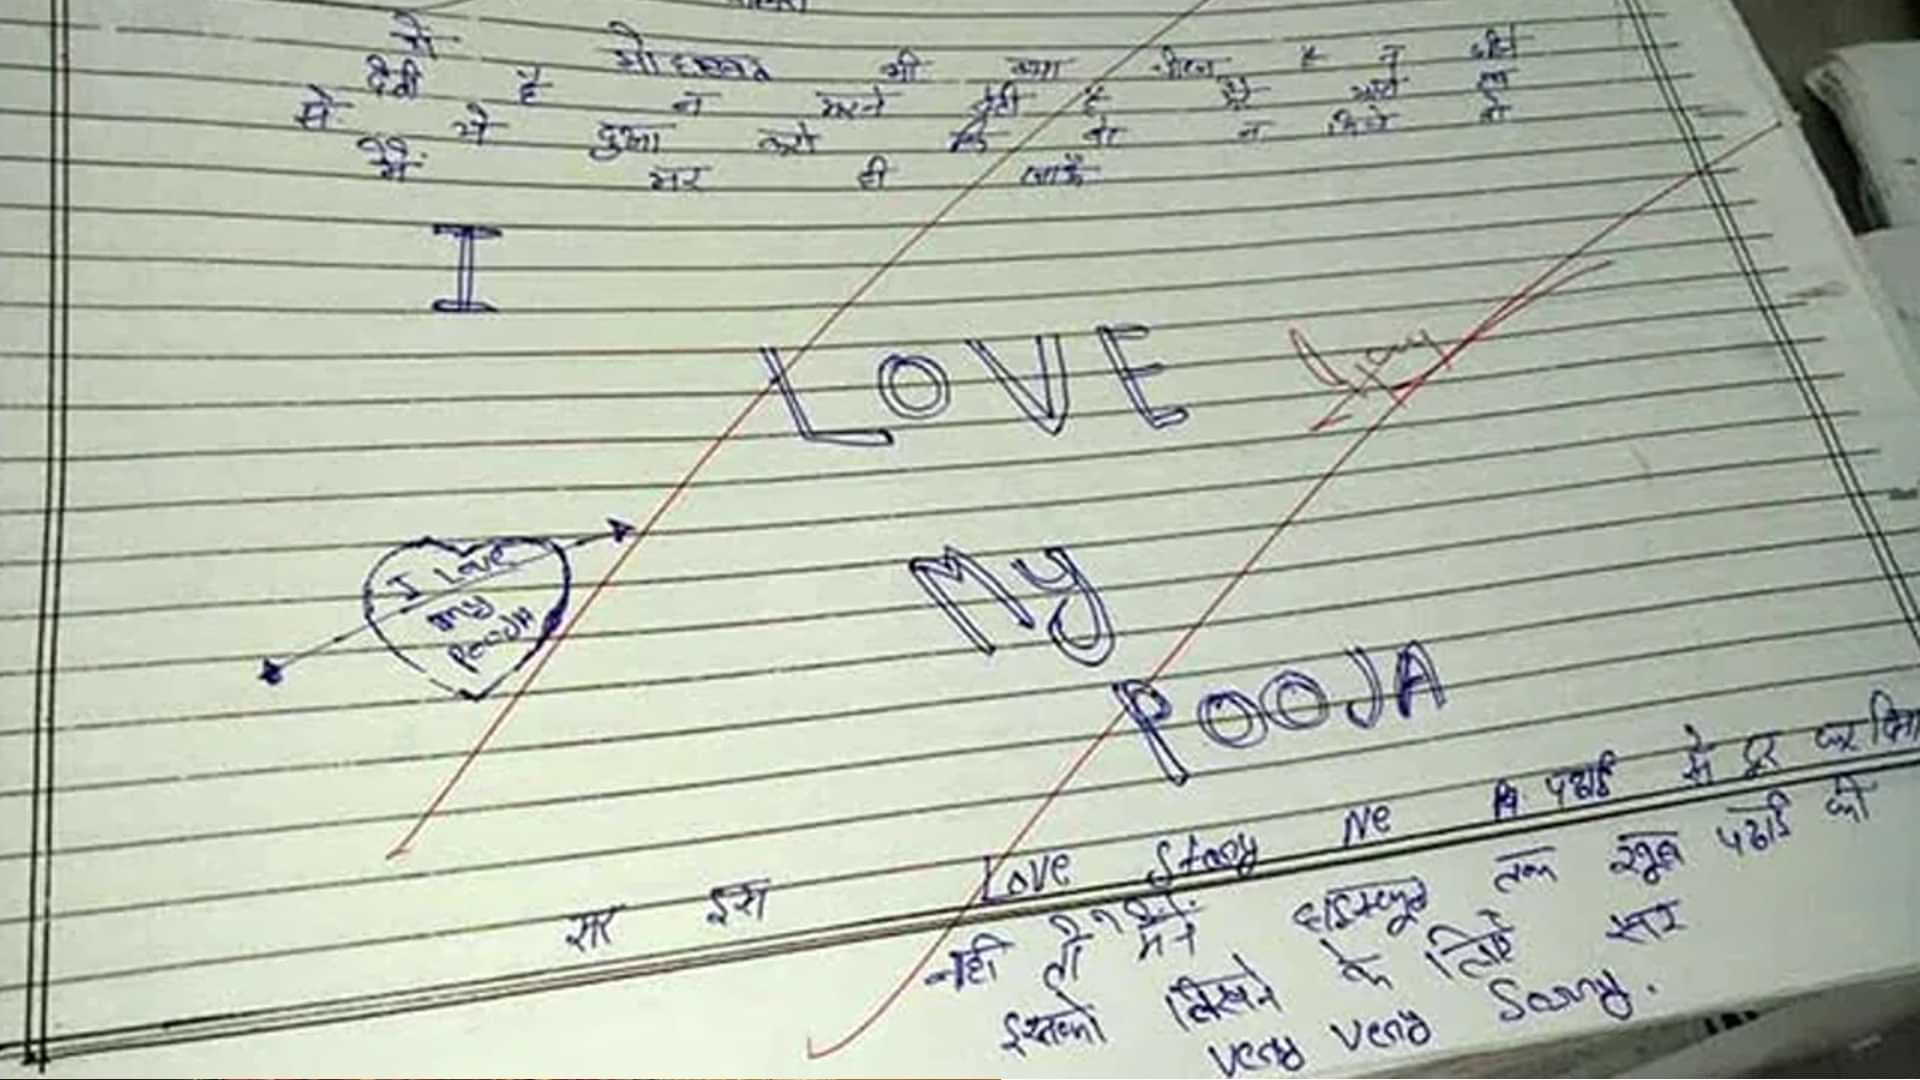 ये मोहब्बत भी क्या चीज है न जीने
देती है न मरने देती है
से ये दुआ करो कि वो न मिले तो
मैं मर ही जाऊँ
I
LOVE
I Love
my
POOJA
My
POOJA
सर इस Love Story Ne पढाई से दूर कर दिया
नहीं तो मैने हाईस्कूल तक खूब पढाई की
इसको लिखने के लिए सर
very very Sorry.